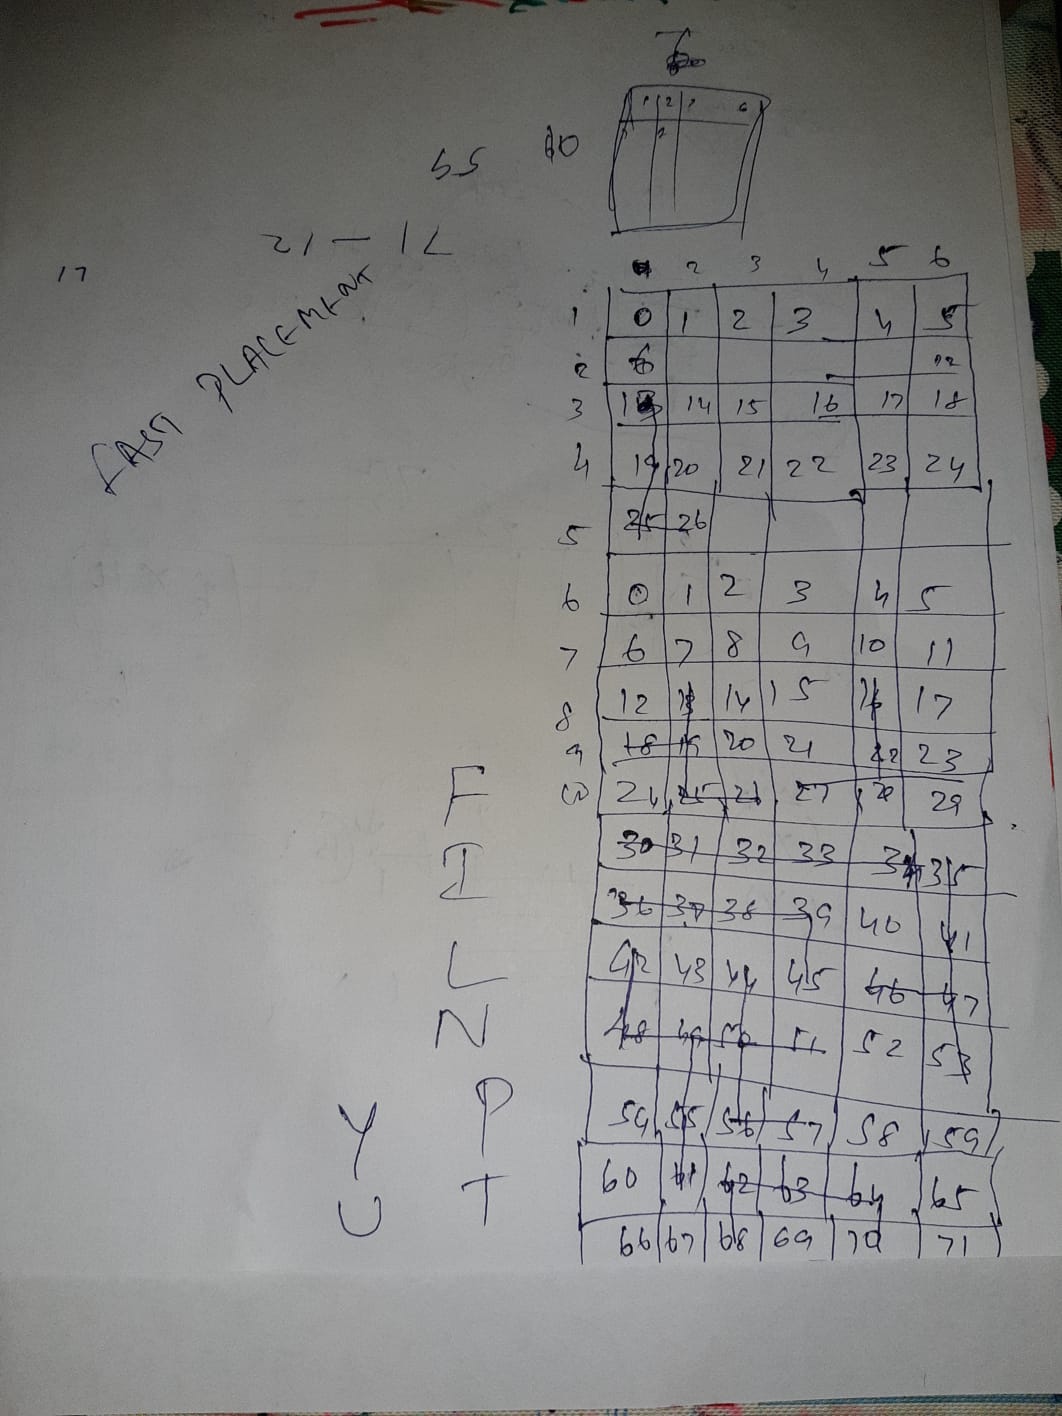 1 2 6
55
21 - 12
17
FAST PLACEMENT
2 3 4 5 6
1 0 1 2 3 4 5
2 6 12
3 13 14 15 16 17 18
4 19 20 21 22 23 24
5 25 26
6 0 1 2 3 4 5
7 6 7 8 9 10 11
8 12 13 14 15 16 17
9 18 19 20 21 22 23
F 24 25 26 27 28 29
I 30 31 32 33 34 35
36 37 38 39 40 41
L 42 43 44 45 46 47
N 48 49 50 51 52 53
Y P 54 55 56 57 58 59
U T 60 61 62 63 64 65
66 67 68 69 70 71